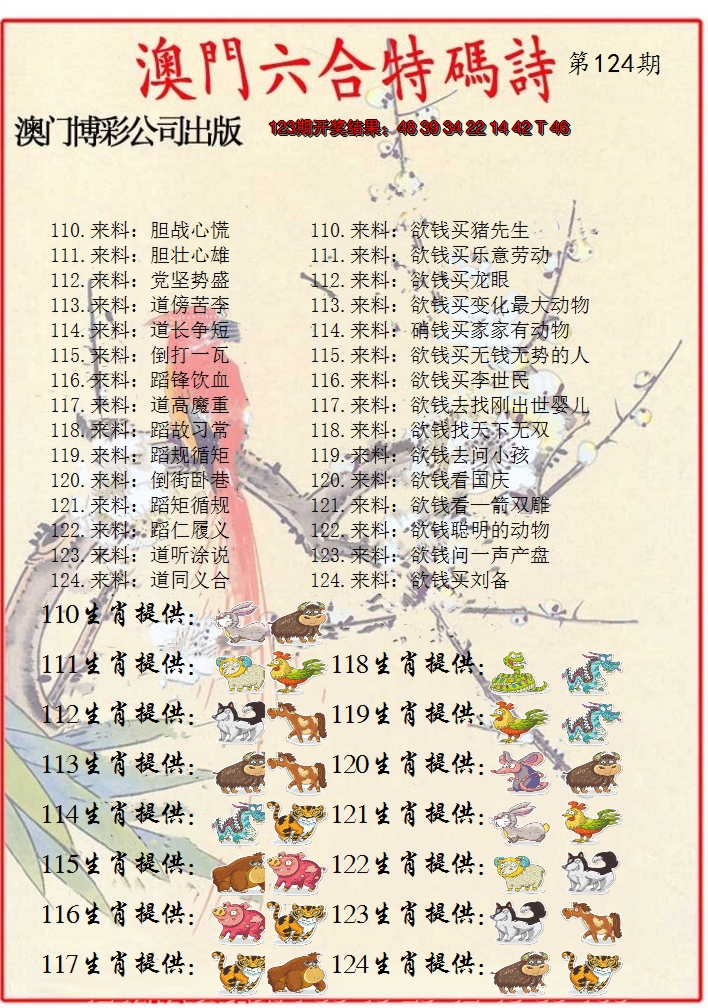 澳門六合特碼詩 第124期
澳门博彩公司出版 123期开奖结果：48 39 34 22 14 42 T 46
110.来料：胆战心慌 110.来料：欲钱买猪先生
111.来料：胆壮心雄 111.来料：欲钱买乐意劳动
112.来料：党坚势盛 112.来料：欲钱买龙眼
113.来料：道傍苦李 113.来料：欲钱买变化最大动物
114.来料：道长争短 114.来料：硝钱买家家有动物
115.来料：倒打一瓦 115.来料：欲钱买无钱无势的人
116.来料：蹈锋饮血 116.来料：欲钱买李世民
117.来料：道高魔重 117.来料：欲钱去找刚出世婴儿
118.来料：蹈故习常 118.来料：欲钱找天下无双
119.来料：蹈规循矩 119.来料：欲钱去问小孩
120.来料：倒街卧巷 120.来料：欲钱看国庆
121.来料：蹈矩循规 121.来料：欲钱看一箭双雕
122.来料：蹈仁履义 122.来料：欲钱聪明的动物
123.来料：道听涂说 123.来料：欲钱问一声产盘
124.来料：道同义合 124.来料：欲钱买刘备
110生肖提供：
111生肖提供： 118生肖提供：
112生肖提供： 119生肖提供：
113生肖提供： 120生肖提供：
114生肖提供： 121生肖提供：
115生肖提供： 122生肖提供：
116生肖提供： 123生肖提供：
117生肖提供： 124生肖提供：